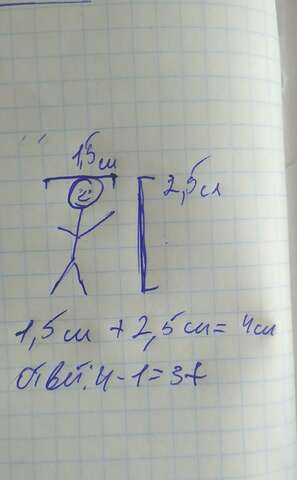 1,5см
2,5см
1,5см + 2,5см = 4см
ответ: 4-1=3